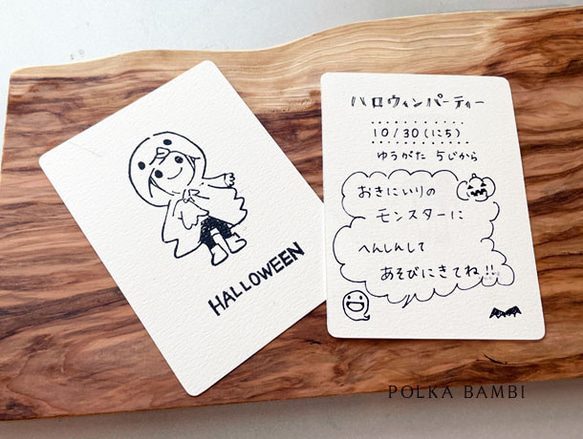 HALLOWEEN
ハロウィンパーティー
10/30(にち)
ゆうがた 5じから
おきにいりの
モンスターに
へんしんして
あそびにきてね!!
POLKA BAMBI